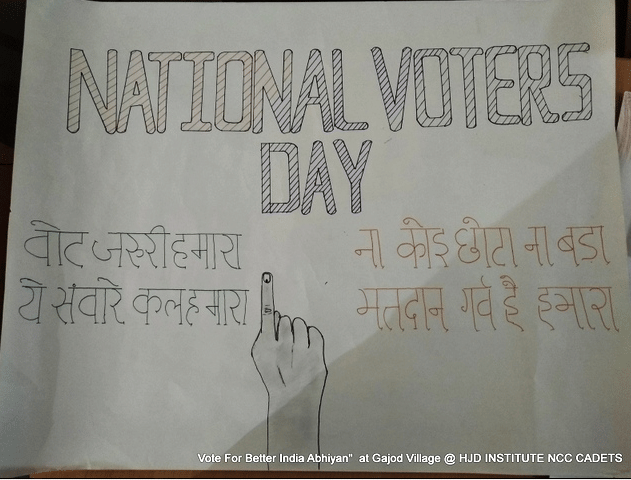 NATIONAL VOTERS
DAY
वोट जरूरी हमारा
ये संवारे कल हमारा
ना कोइ छोटा ना बडा
मतदान गर्व है हमारा
Vote For Better India Abhiyan" at Gajod Village @ HJD INSTITUTE NCC CADETS